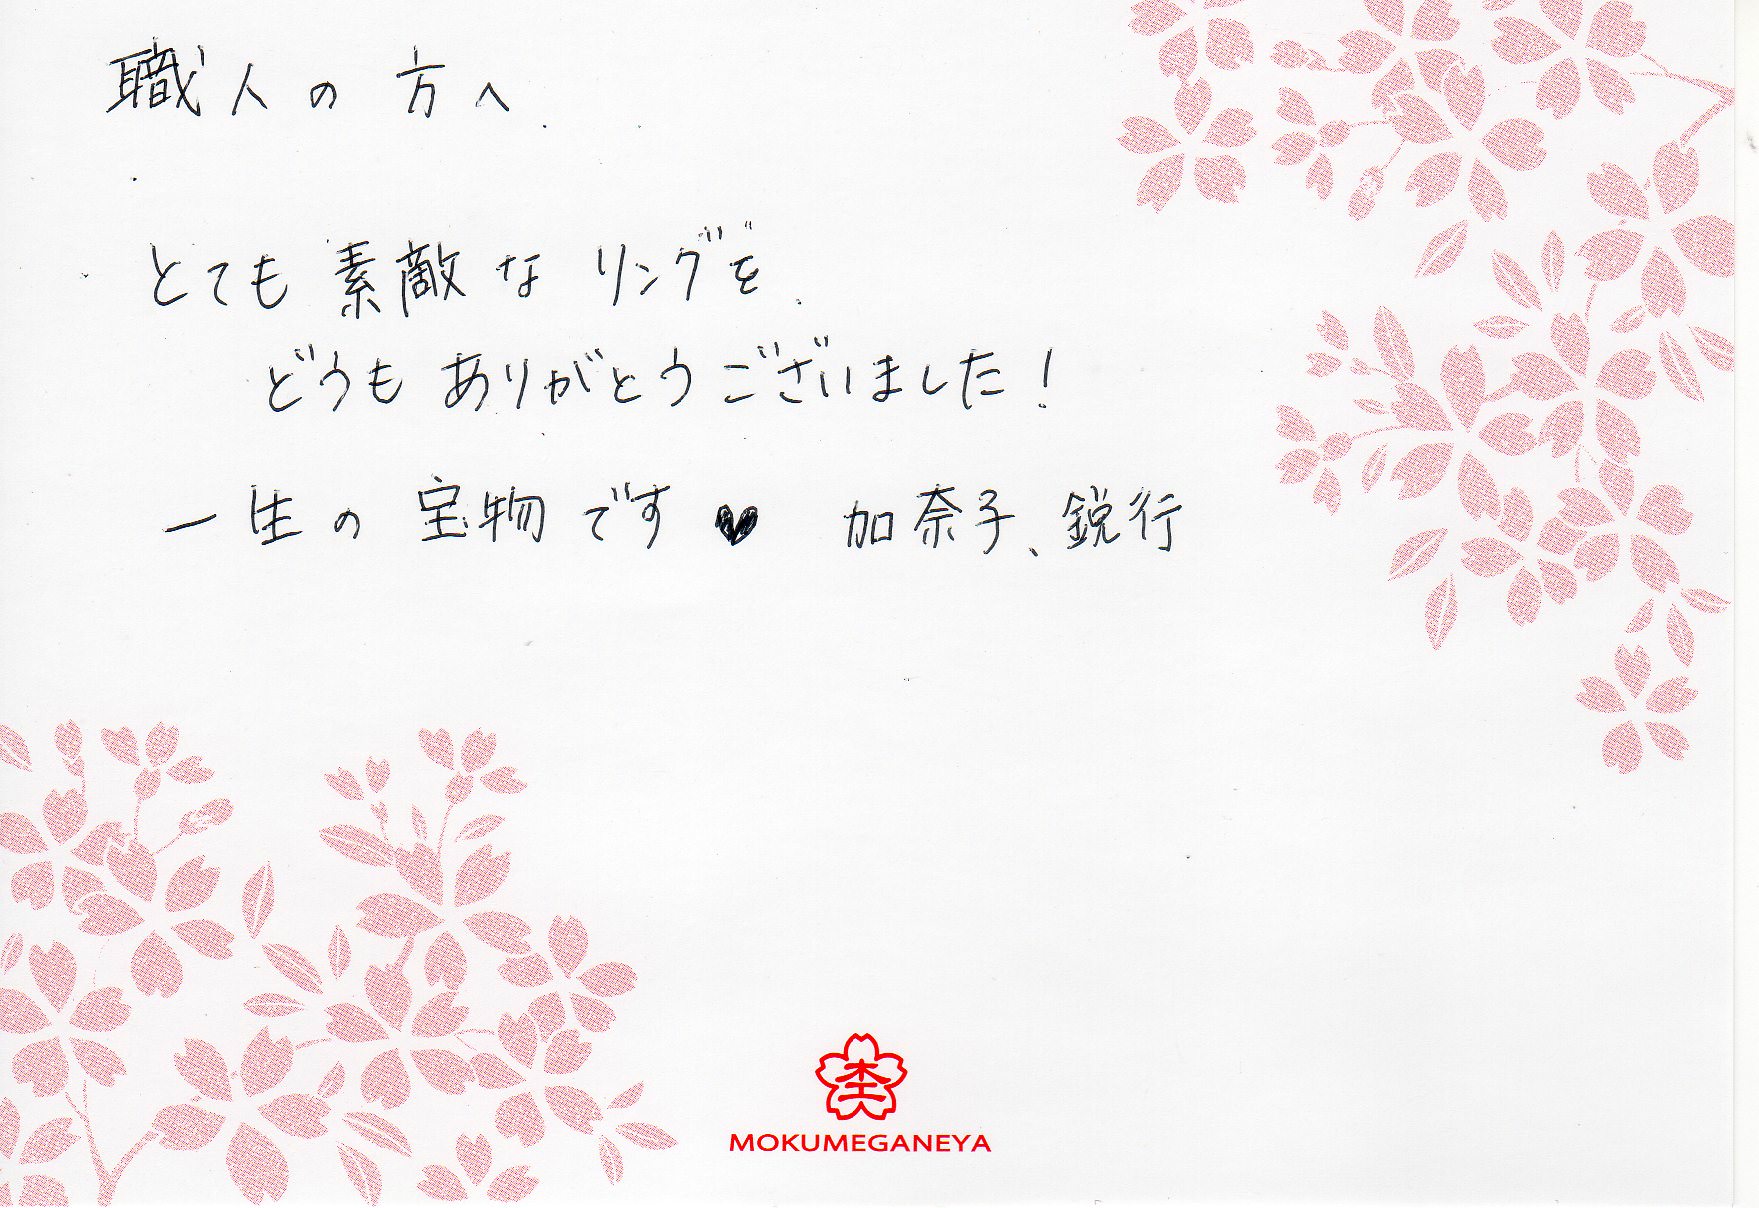 職人の方へ
とても素敵なリングを
どうもありがとうございました！
一生の宝物です♥ 加奈子、鋭行
MOKUMEGANEYA